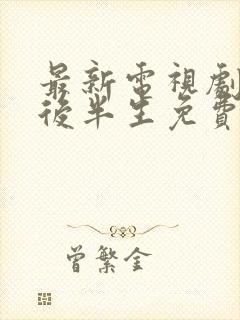 最新電視劇
後半生免費
曾繁金